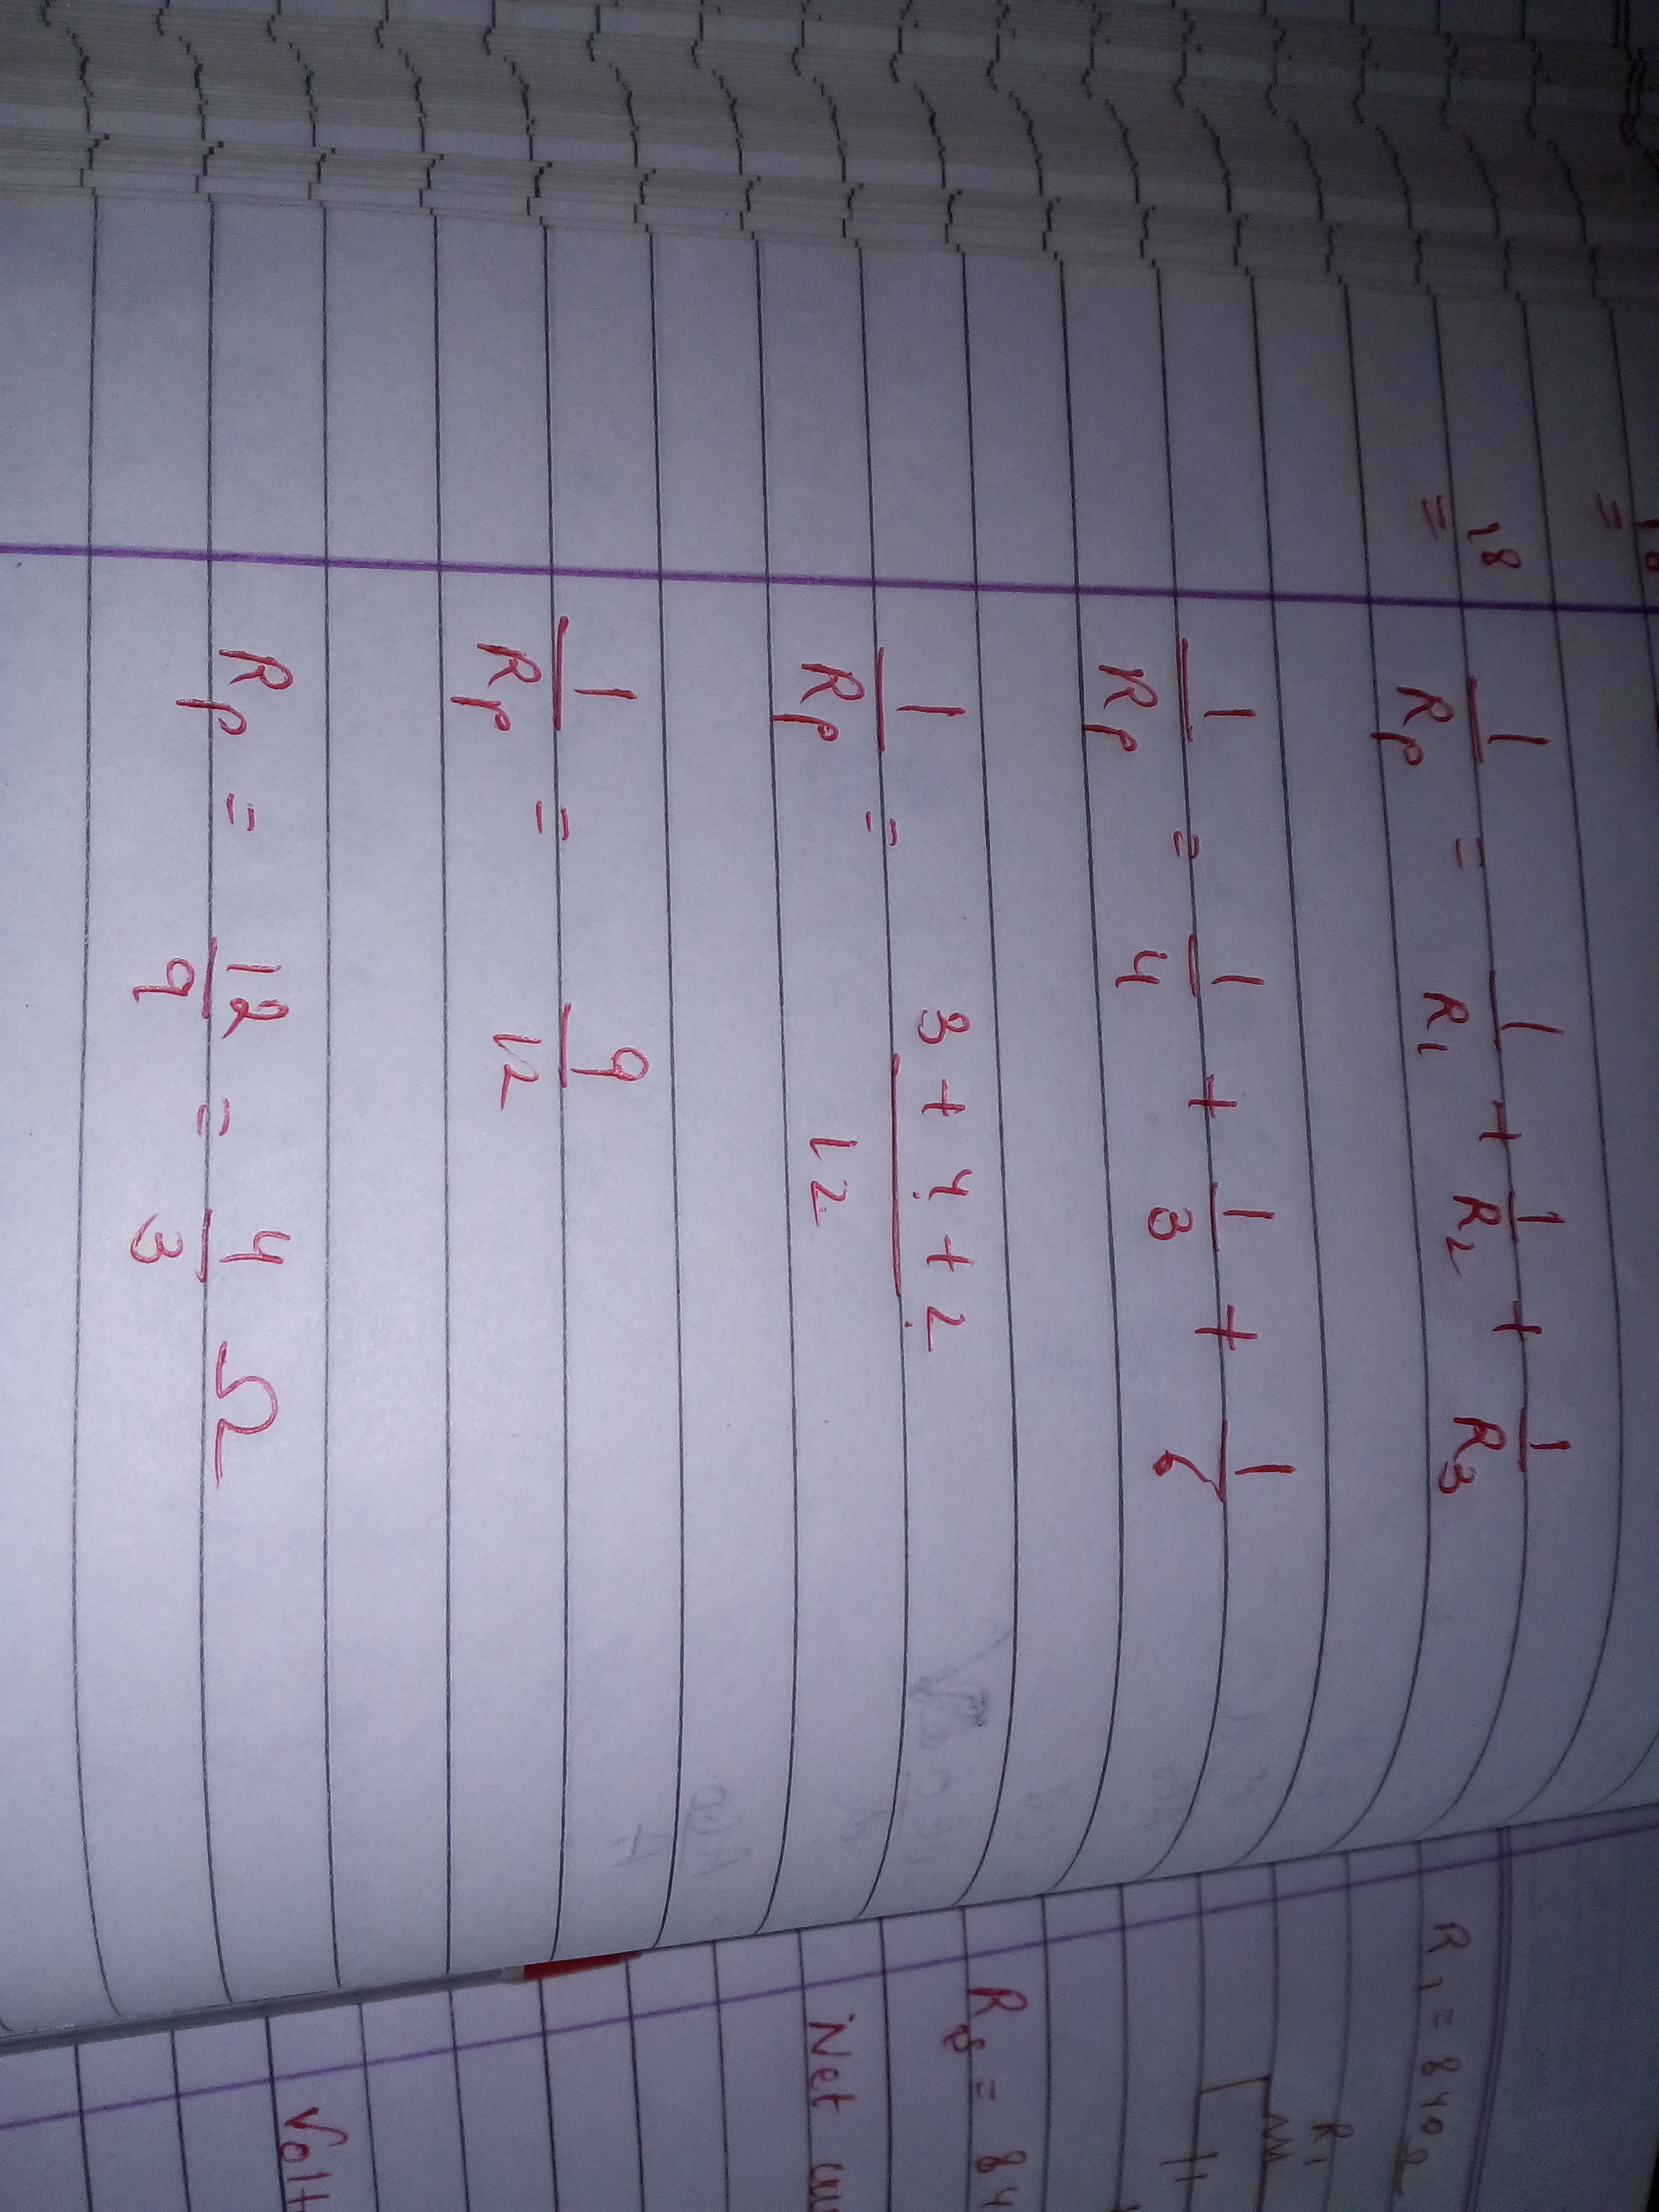 18
=
1/Rp = 1/R1 + 1/R2 + 1/R3
1/Rp = 1/4 + 1/3 + 1/6
1/Rp = 3 + 4 + 2/12
1/Rp = 9/12
Rp = 12/9 = 4/3 Ω
R1 = 840Ω
R1
= 84
Net
Volt